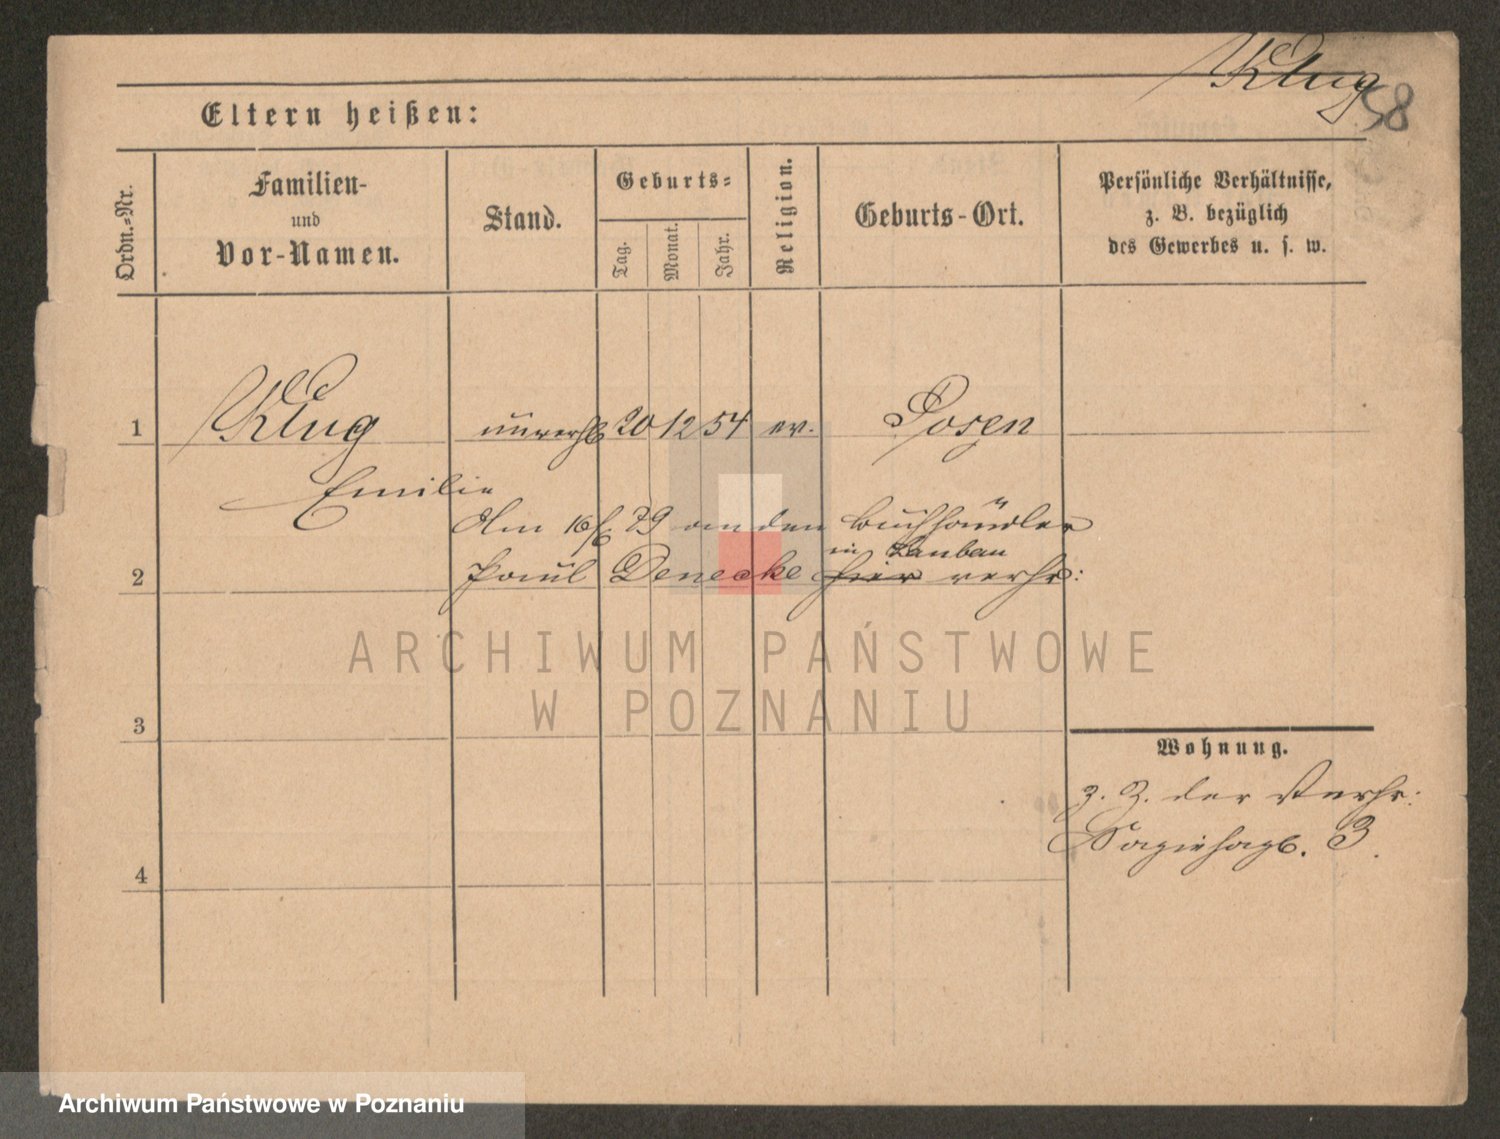 Klug
58
Eltern heißen:
Ordn.-Nr.
Familien-
und
Vor-Namen.
Stand.
Geburts-
Tag.
Monat.
Jahr.
Religion.
Geburts-Ort.
Persönliche Verhältnisse,
z. B. bezüglich
des Gewerbes u. s. w.
1 Klug unverh 20 12 54 ev. Posen
Emilie
Am 16/6 79 an den Buchhändler
in Lauban
2 Paul Denecke hier verh:
ARCHIWUM PAŃSTWOWE
W POZNANIU
3
Wohnung.
z. Z. der Verh:
3
4
Archiwum Państwowe w Poznaniu